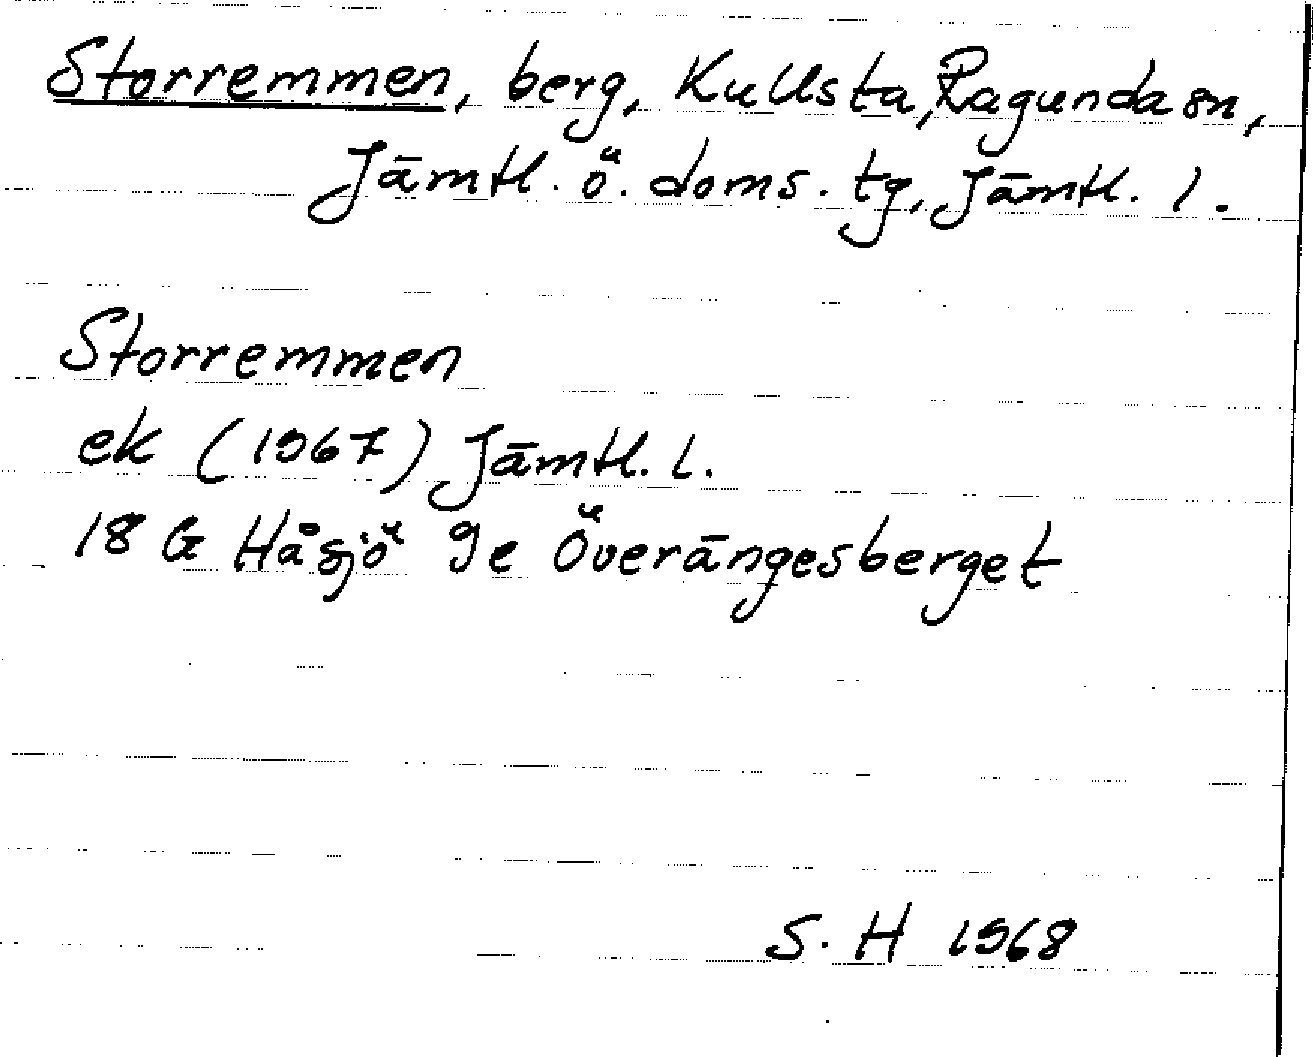 Storremmen, berg, Kullsta, Ragunda sn,
Jämtl. ö. doms. tg, Jämtl. l.
Storremmen
ek (1967) Jämtl. l.
18 G Håsjö 9e Överängesberget
S. H 1968